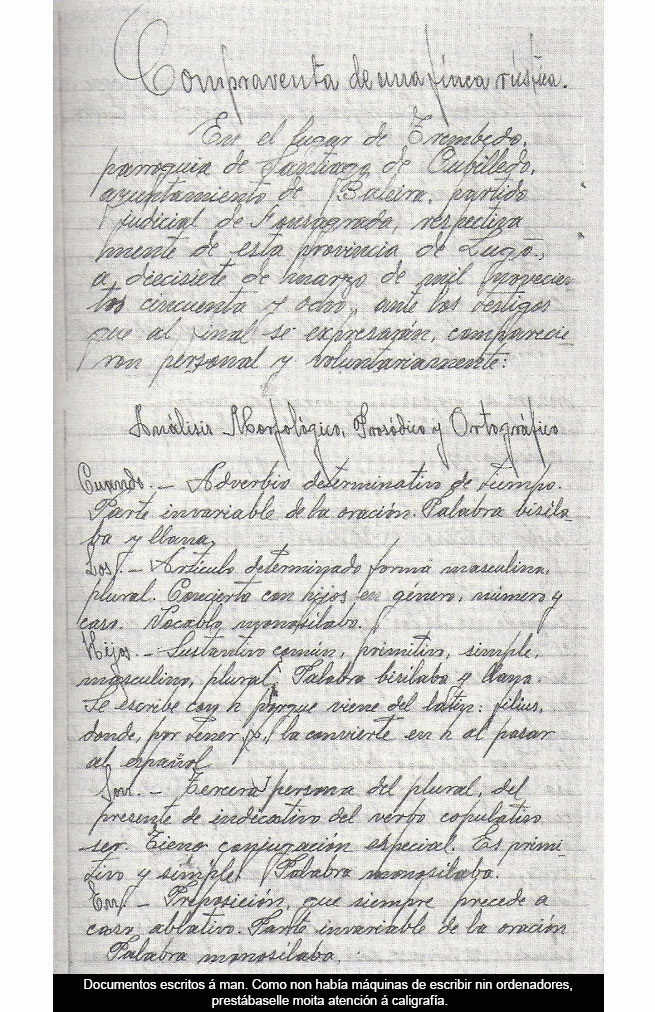 Compraventa de una finca rústica.
En el lugar de Trembedo,
parroquia de Santiago de Cubilledo,
ayuntamiento de Baleira, partido
judicial de Fonsagrada, respectiva
mente de esta provincia de Lugo,
a diecisiete de marzo de mil novecien
tos cincuenta y ocho, ante los testigos
que al final se expresarán, comparecie-
ron personal y voluntariamente:
Análisis Morfológico, Prosódico y Ortográfico
Cuando. — Adverbio determinativo de tiempo.
Parte invariable de la oración. Palabra bisíla-
ba y llana.
Los. — Artículo determinado forma masculina,
plural. Concierta con hijos en género, número y
caso. Vocablo monosílabo.
Hijos. — Sustantivo común, primitivo, simple,
masculino, plural. Palabra bisílaba y llana.
Se escribe con h porque viene del latín: filius,
donde, por tener f, la convierte en h al pasar
al español.
Son. — Tercera persona del plural, del
presente de indicativo del verbo copulativo
ser. Tiene conjugación especial. Es primi-
tivo y simple. Palabra monosílaba.
En. — Preposición, que siempre precede a
caso ablativo. Parte invariable de la oración
Palabra monosílaba.
Documentos escritos á man. Como non había máquinas de escribir nin ordenadores,
prestábaselle moita atención á caligrafía.